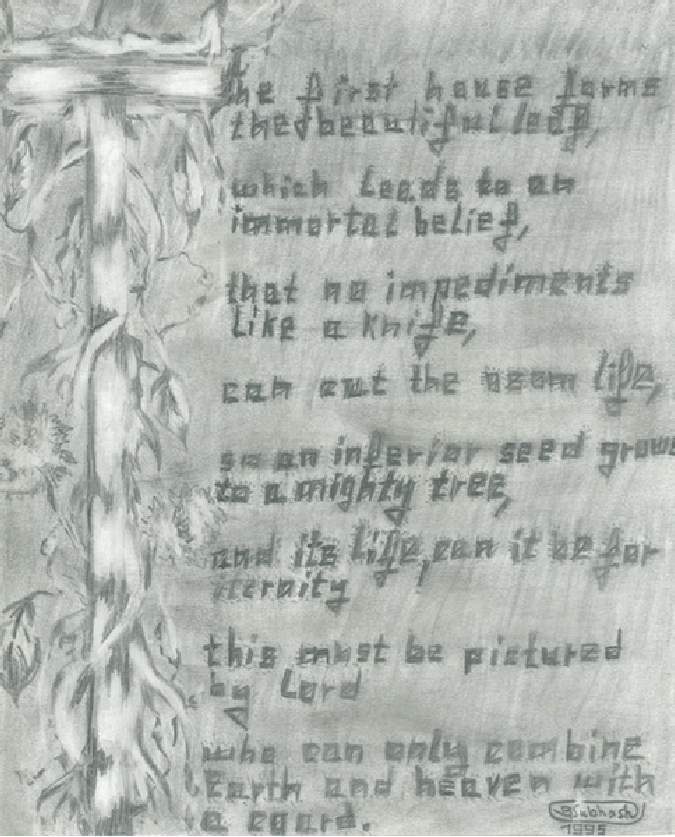 the first house forms
the beautiful leaf,
which leads to an
immortal belief,
that no impediments
like a knife,
can cut the life,
so an inferior seed grows
to a mighty tree,
and its life, can it be for
iternity
this must be pictured
by Lord
who can only combine
Earth and heaven with
a coard.
Subhash
1995